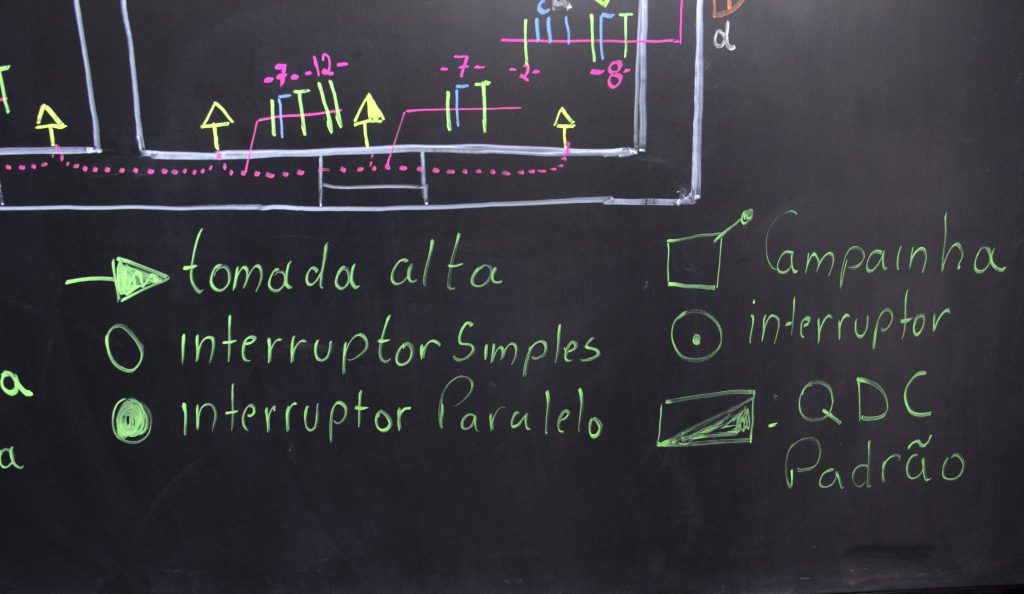 d
-7- -12-
-7-
-2-
-8-
tomada alta
interruptor Simples
interruptor Paralelo
a
a
Campainha
interruptor
: QDC
Padrão